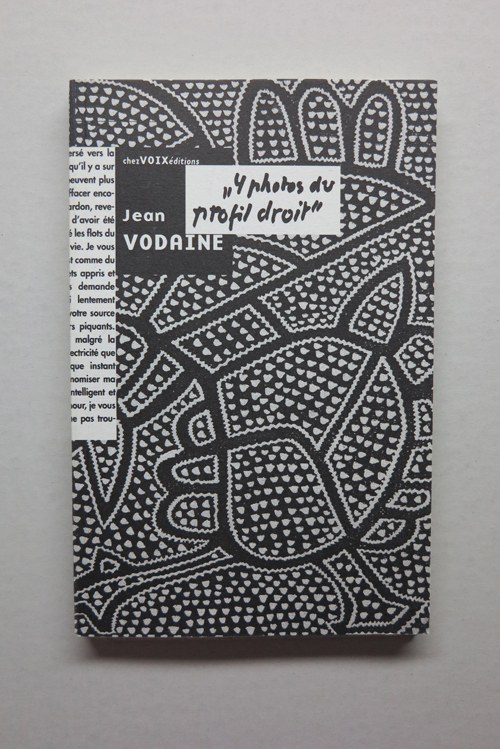 ersé vers la
qu'il y a sur
peuvent plus
ffacer enco-
ardon, reve-
d'avoir été
é les flots du
vie. Je vous
t comme du
ets appris et
s demande
i lentement
votre source
rs piquants.
malgré la
ectricité que
que instant
nomiser ma
ntelligent et
nour, je vous
ne pas trou-
chezVOIXéditions
„4 photos du
profil droit“
Jean
VODAINE